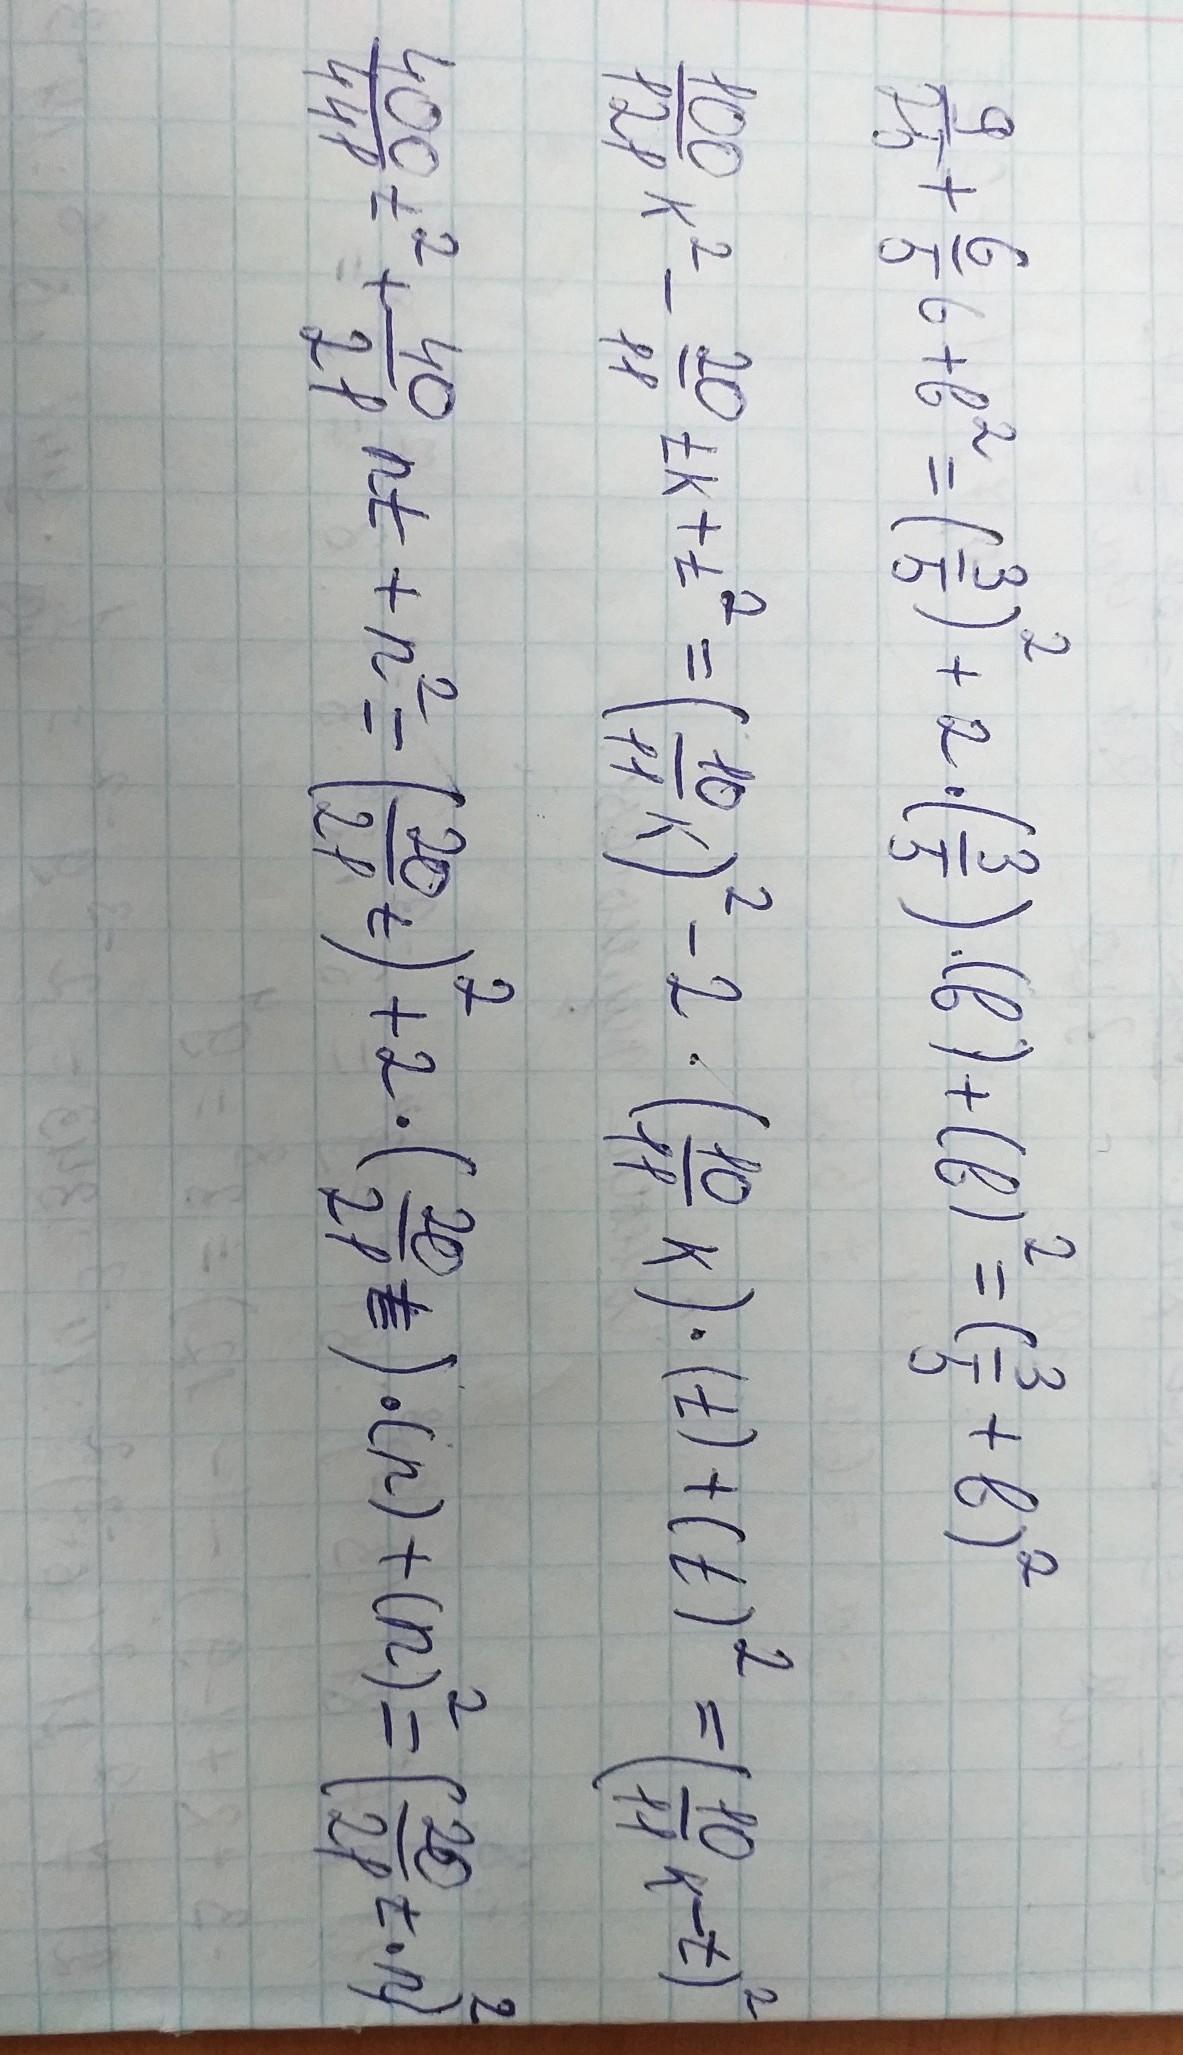 9/25 + 6/5 b + b² = (3/5)² + 2 · (3/5) · (b) + (b)² = (3/5 + b)²
100/121 k² - 20/11 tk + t² = (10/11 k)² - 2 · (10/11 k) · (t) + (t)² = (10/11 k - t)²
400/441 t² + 40/21 nt + n² = (20/21 t)² + 2 · (20/21 t) · (n) + (n)² = (20/21 t · n)²